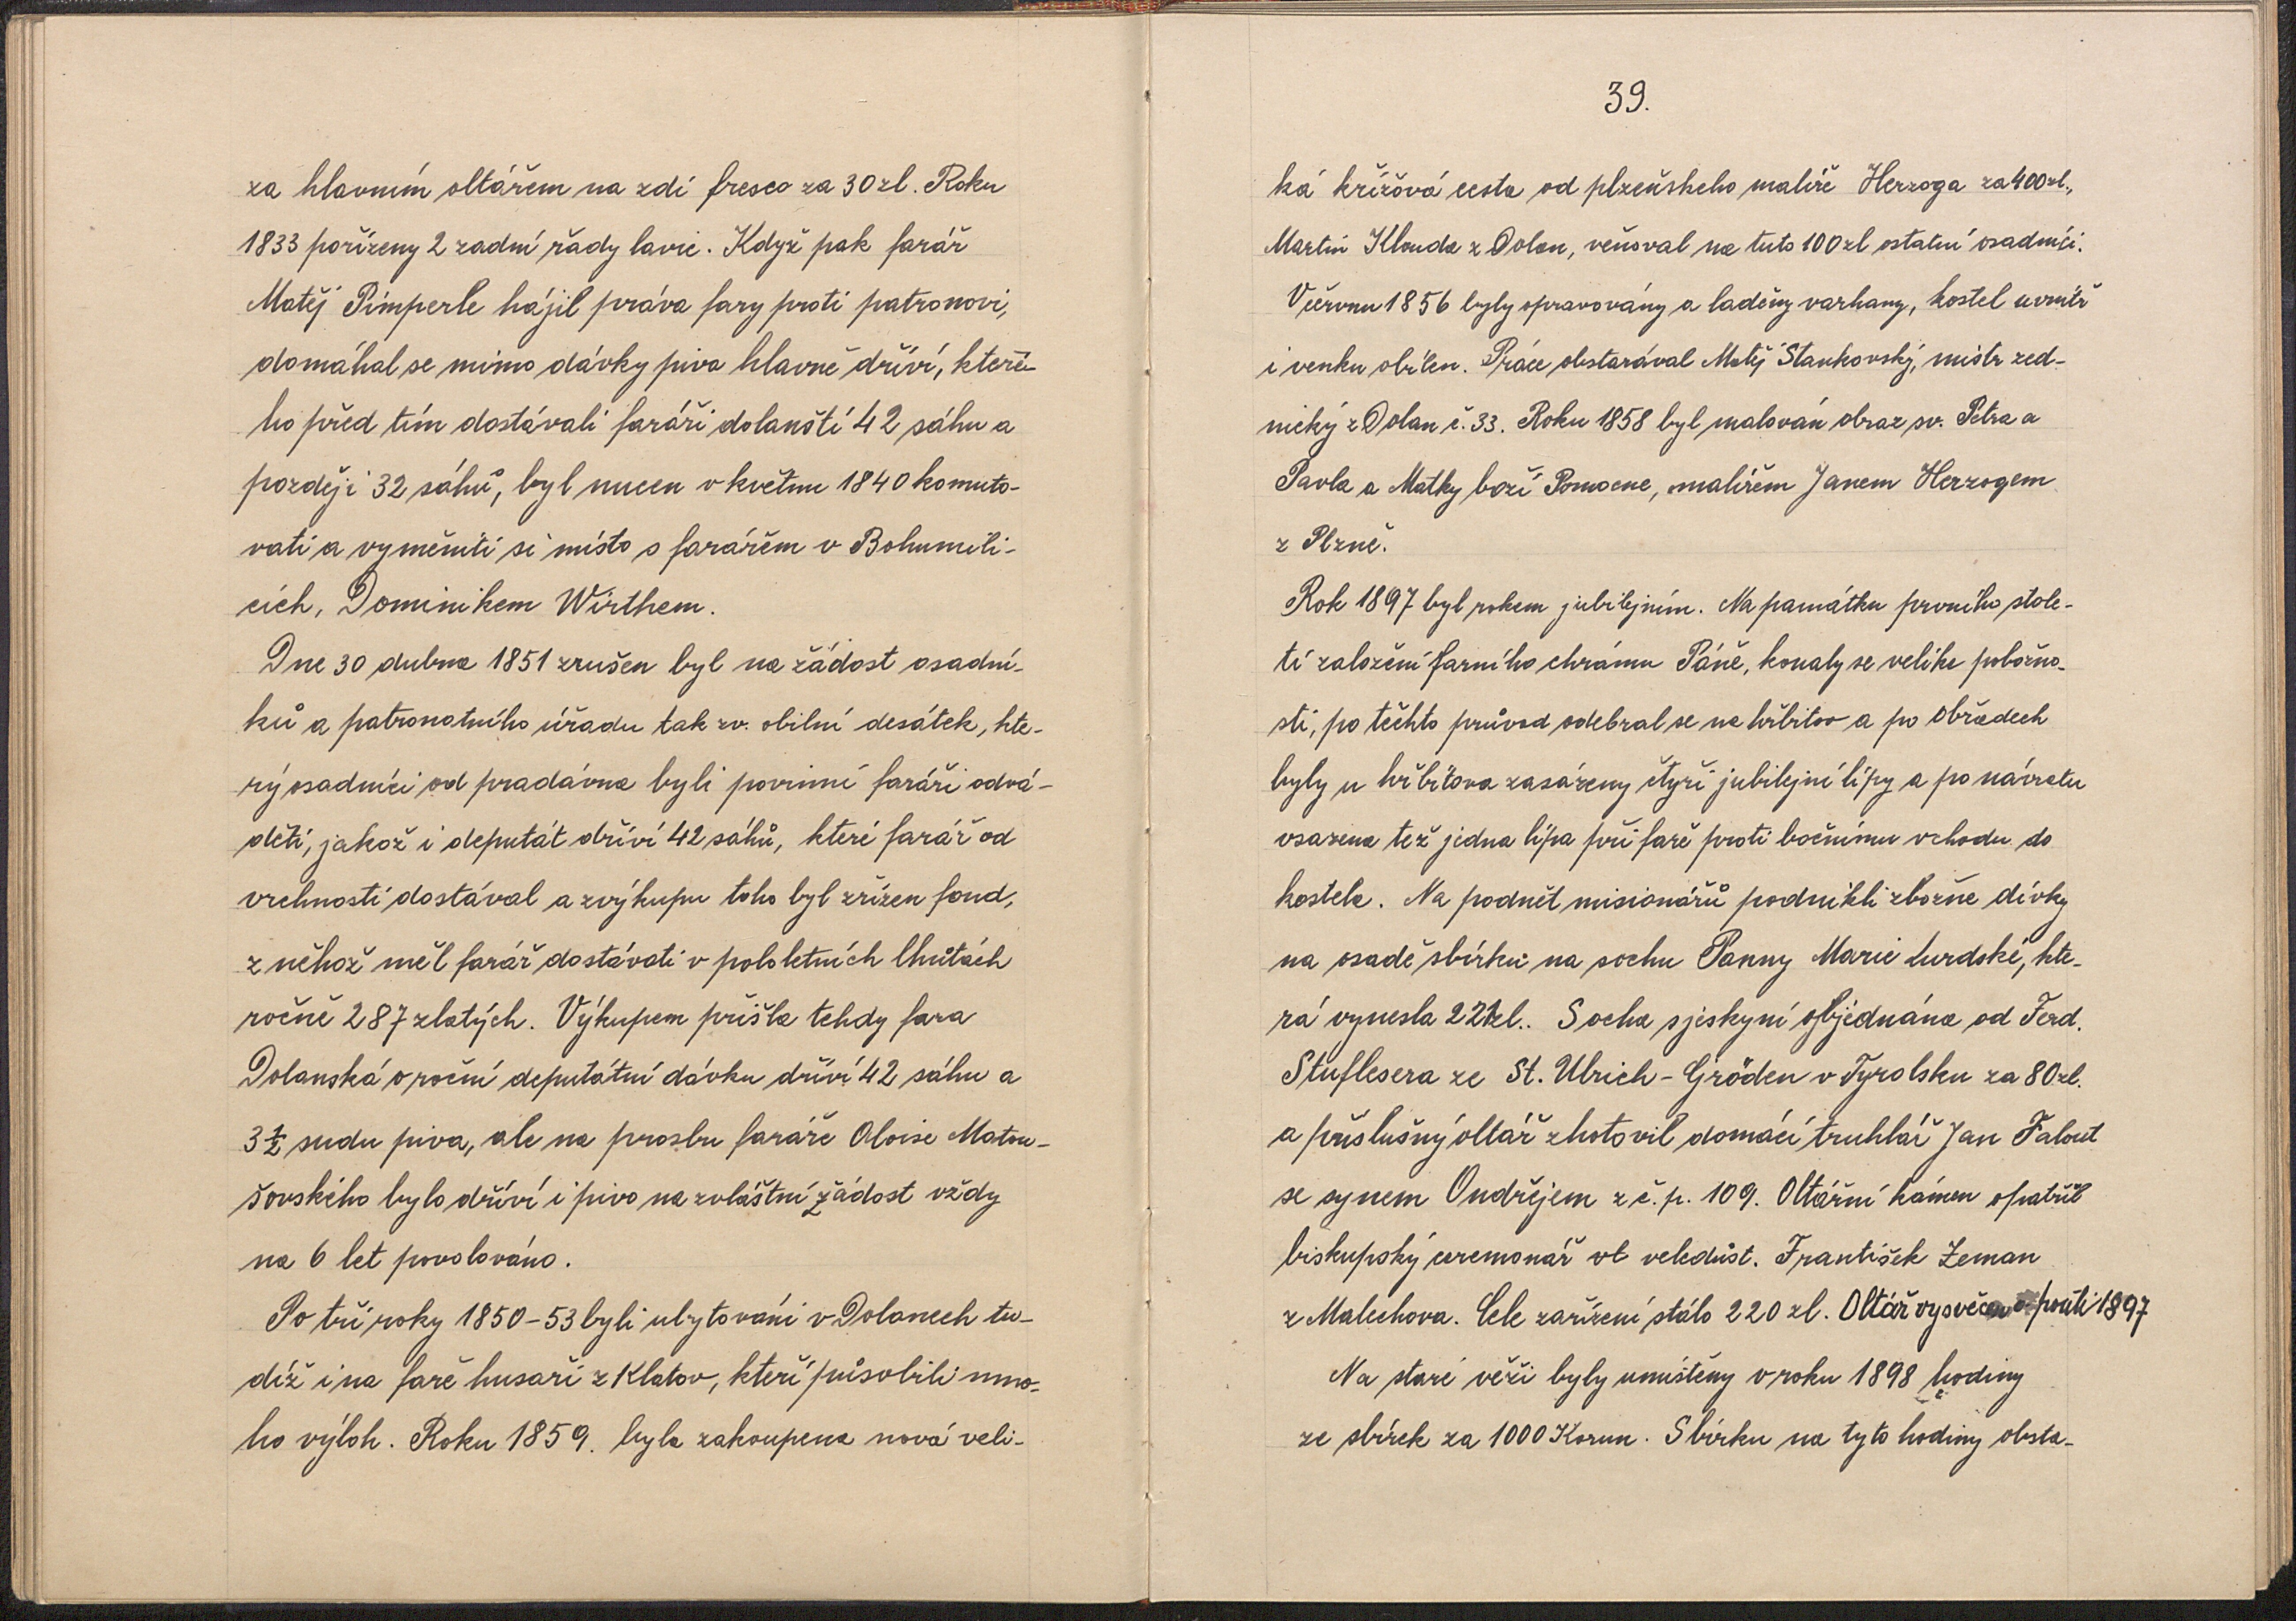 za hlavním oltářem na zdi fresco za 30 zl. Roku
1833 pořízeny 2 zadní řady lavic. Když pak farář
Matěj Pimperle hájil práva fary proti patronovi,
domáhal se mimo dávky piva hlavně dříví, které-
ho před tím dostávali faráři dolanští 42 sáhu a
později 32 sáhů, byl nucen v květnu 1840 komuto-
vati a vyměniti si místo s farářem v Bohumili-
cích, Dominikem Wirthem.
Dne 30 dubna 1851 zrušen byl na žádost osadní-
ků a patronatního úřadu tak zv. obilní desátek, kte-
rý osadníci od pradávna byli povinní faráři odvá-
děti, jakož i deputát dříví 42 sáhů, které farář od
vrchnosti dostával a z výkupu toho byl zřízen fond,
z něhož měl farář dostávati v pololetních lhůtách
ročně 287 zlatých. Výkupem přišla tehdy fara
Dolanská o roční deputátní dávku dříví 42 sáhu a
3 1/2 sudu piva, ale na prosbu faráře Aloise Matou-
šovského bylo dříví i pivo na zvláštní žádost vždy
na 6 let povolováno.
Po tři roky 1850-53 byli ubytováni v Dolanech tu-
díž i na faře husaři z Klatov, kteří působili mno-
ho výloh. Roku 1859. byla zakoupena nová veli-
39.
ká křížová cesta od plzeňskeho malíře Herzoga za 400 zl.,
Martin Klouda z Dolan, věnoval na tuto 100 zl ostatní osadníci.
V červnu 1856 byly opravovány a laděny varhany, kostel uvnitř
i venku obílen. Práce obstarával Matěj Stankovský, mistr zed-
nický z Dolan č. 33. Roku 1858 byl malován obraz sv. Petra a
Pavla a Matky boží Pomocne, malířem Janem Herzogem
z Plzně.
Rok 1897 byl rokem jubilejním. Na památku prvního stole-
tí založení farního chrámu Páně, konaly se velike pobožno-
sti, po těchto průvod odebral se na hřbitov a po obřadech
byly u hřbitova zasázeny čtyři jubilejní lípy a po návratu
vsazena též jedna lípa při faře proti bočnímu vchodu do
kostela. Na podnět misionářů podnikli zbožne dívky
na osadě sbírku na sochu Panny Marie Lurdské, kte-
rá vynesla 221 zl.. Socha s jeskyní objednána od Ferd.
Stuflesera ze St. Ulrich - Gröden v Tyrolsku za 80 zl.
a příslušný oltář zhotovil domácí truhlář Jan Falout
se synem Ondřejem z č. p. 109. Oltářní kámen opatřil
biskupský ceremonář vt veledůst. František Zeman
z Malechova. Cele zařízení stálo 220 zl. Oltář vysvěcen o pouti 1897
Na staré věži byly umístěny v roku 1898 hodiny
ze sbírek za 1000 Korun. Sbírku na tyto hodiny obsta-